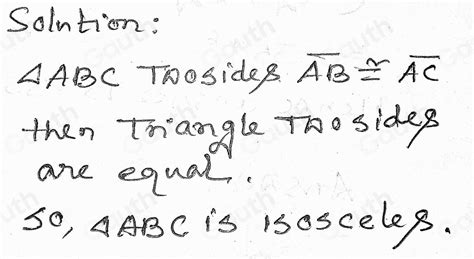 Solution:
△ABC Two sides A̅B̅ ≅ A̅C̅
then Triangle Two sides
are equal.
so, △ABC is isosceles.